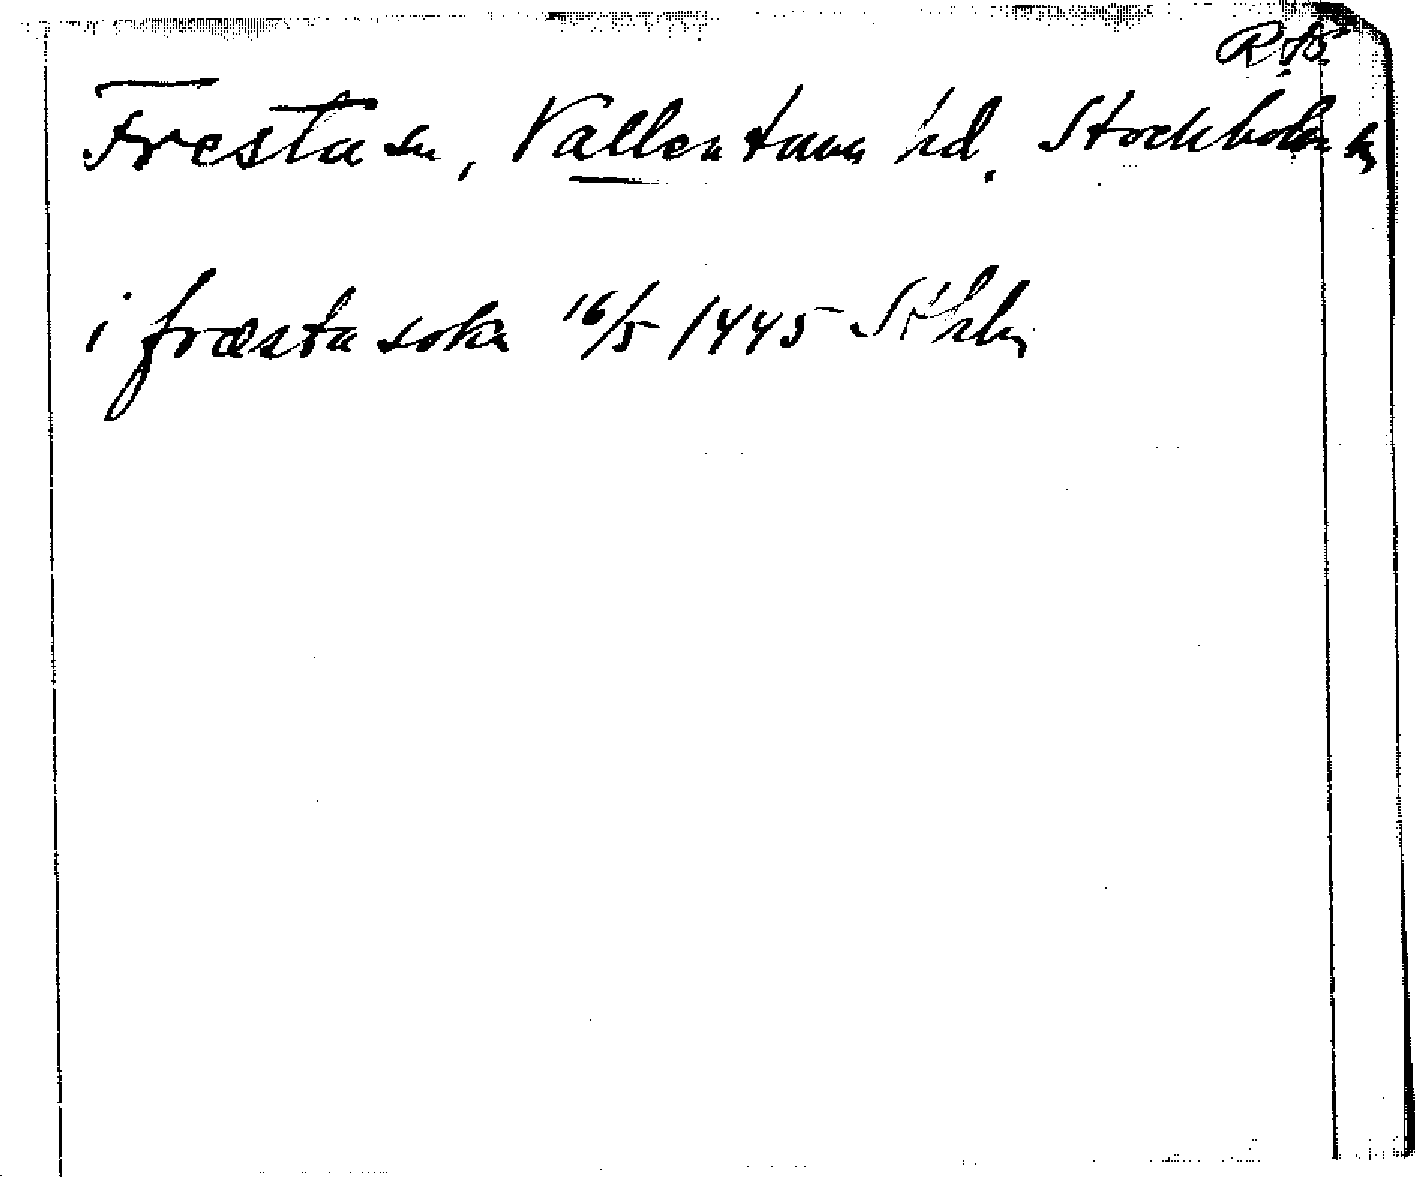 R.A.
Fresta sn, Vallentuna hd. Stockholms l.
i fræsta sokn 16/5 1445 Sthlm